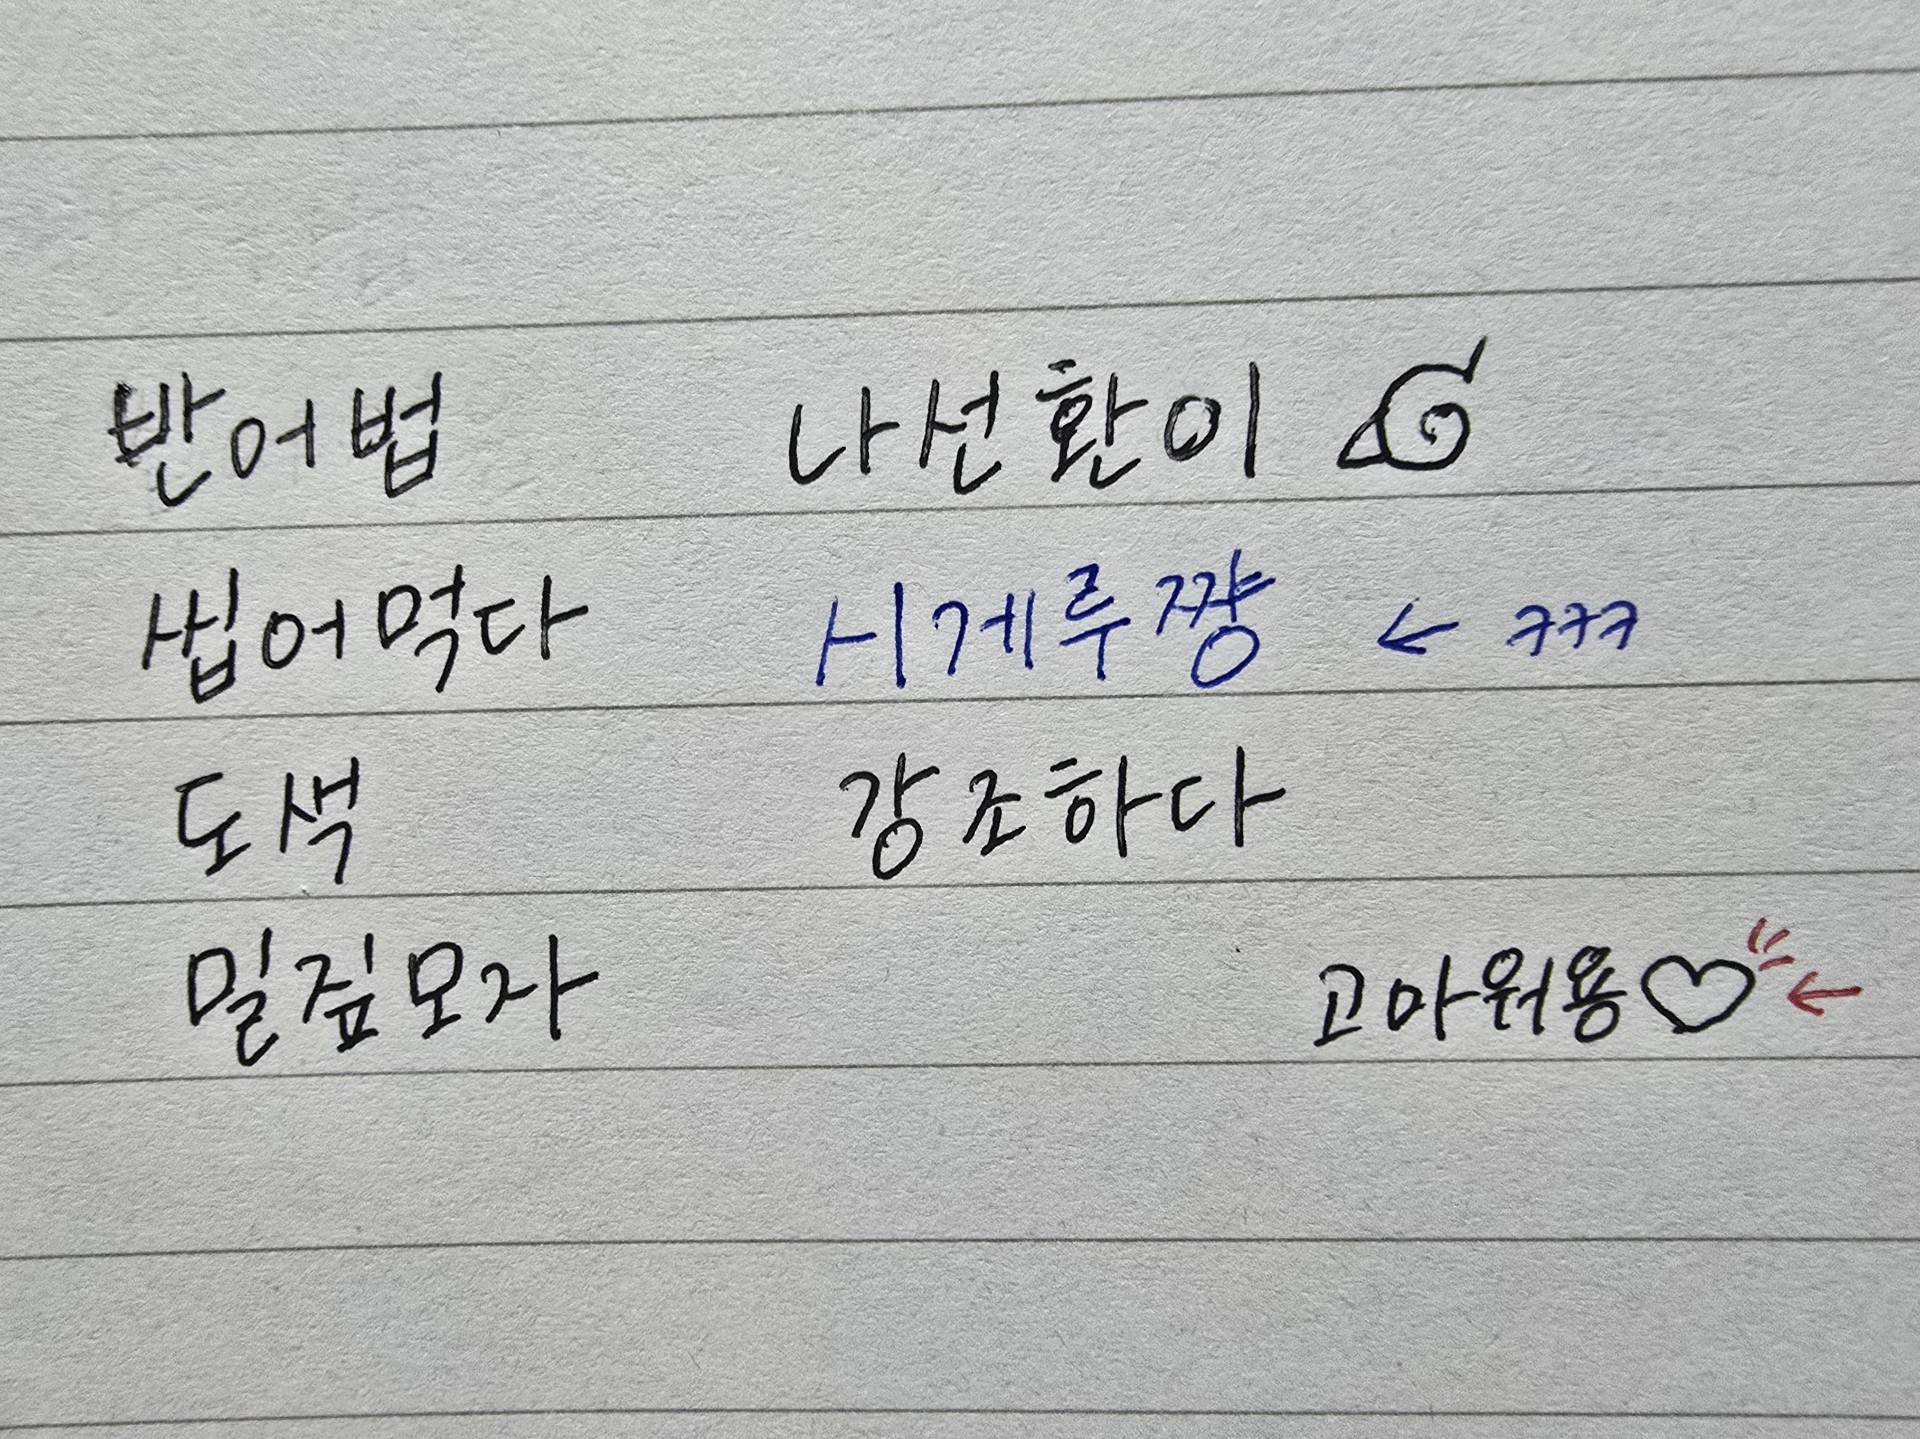 반어법 나선환이
씹어먹다 시게루쨩 ← ㅋㅋㅋ
도색 강조하다
밀짚모자 고마워용♡ ←